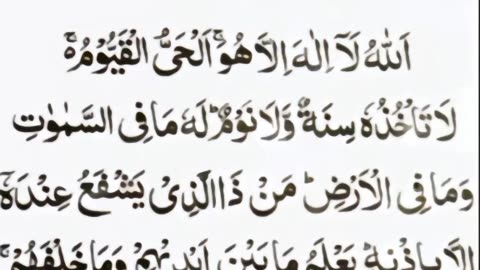 اَللّٰهُ لَاۤ اِلٰهَ اِلَّا هُوَ ۚ اَلْحَیُّ الْقَیُّوْمُ ۬ۚ
لَا تَاْخُذُهٗ سِنَةٌ وَّلَا نَوْمٌ ؕ لَهٗ مَا فِی السَّمٰوٰتِ
وَمَا فِی الْاَرْضِ ؕ مَنْ ذَا الَّذِیْ یَشْفَعُ عِنْدَهٗۤ
اِلَّا بِاِذْنِهٖ ؕ یَعْلَمُ مَا بَیْنَ اَیْدِیْهِمْ وَمَا خَلْفَهُمْ ۚ